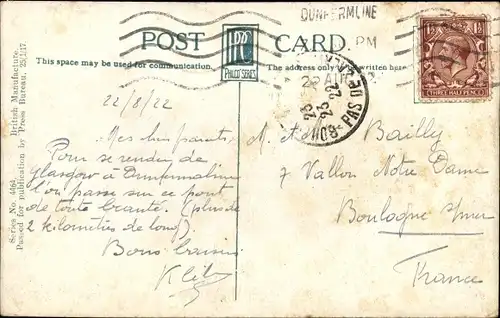 DUNFERMLINE
PM
22
POST CARD.
PHILCO SERIES
This space may be used for communication.
The address only to be written here
THREE HALF PENCE
PAS DE
23
22
Series No. 464.
British Manufacture.
Passed for publication by Press Bureau, 25/1/17.
22/8/22
Mes chers parents
Pour se rendre de
Glasgow à Dunfermline
l'on passe sur ce pont
de toute beauté. (plus de
2 kilomètres de long).
Bons baisers
M. Bailly
7 Vallon Notre Dame
Boulogne s/mer
France